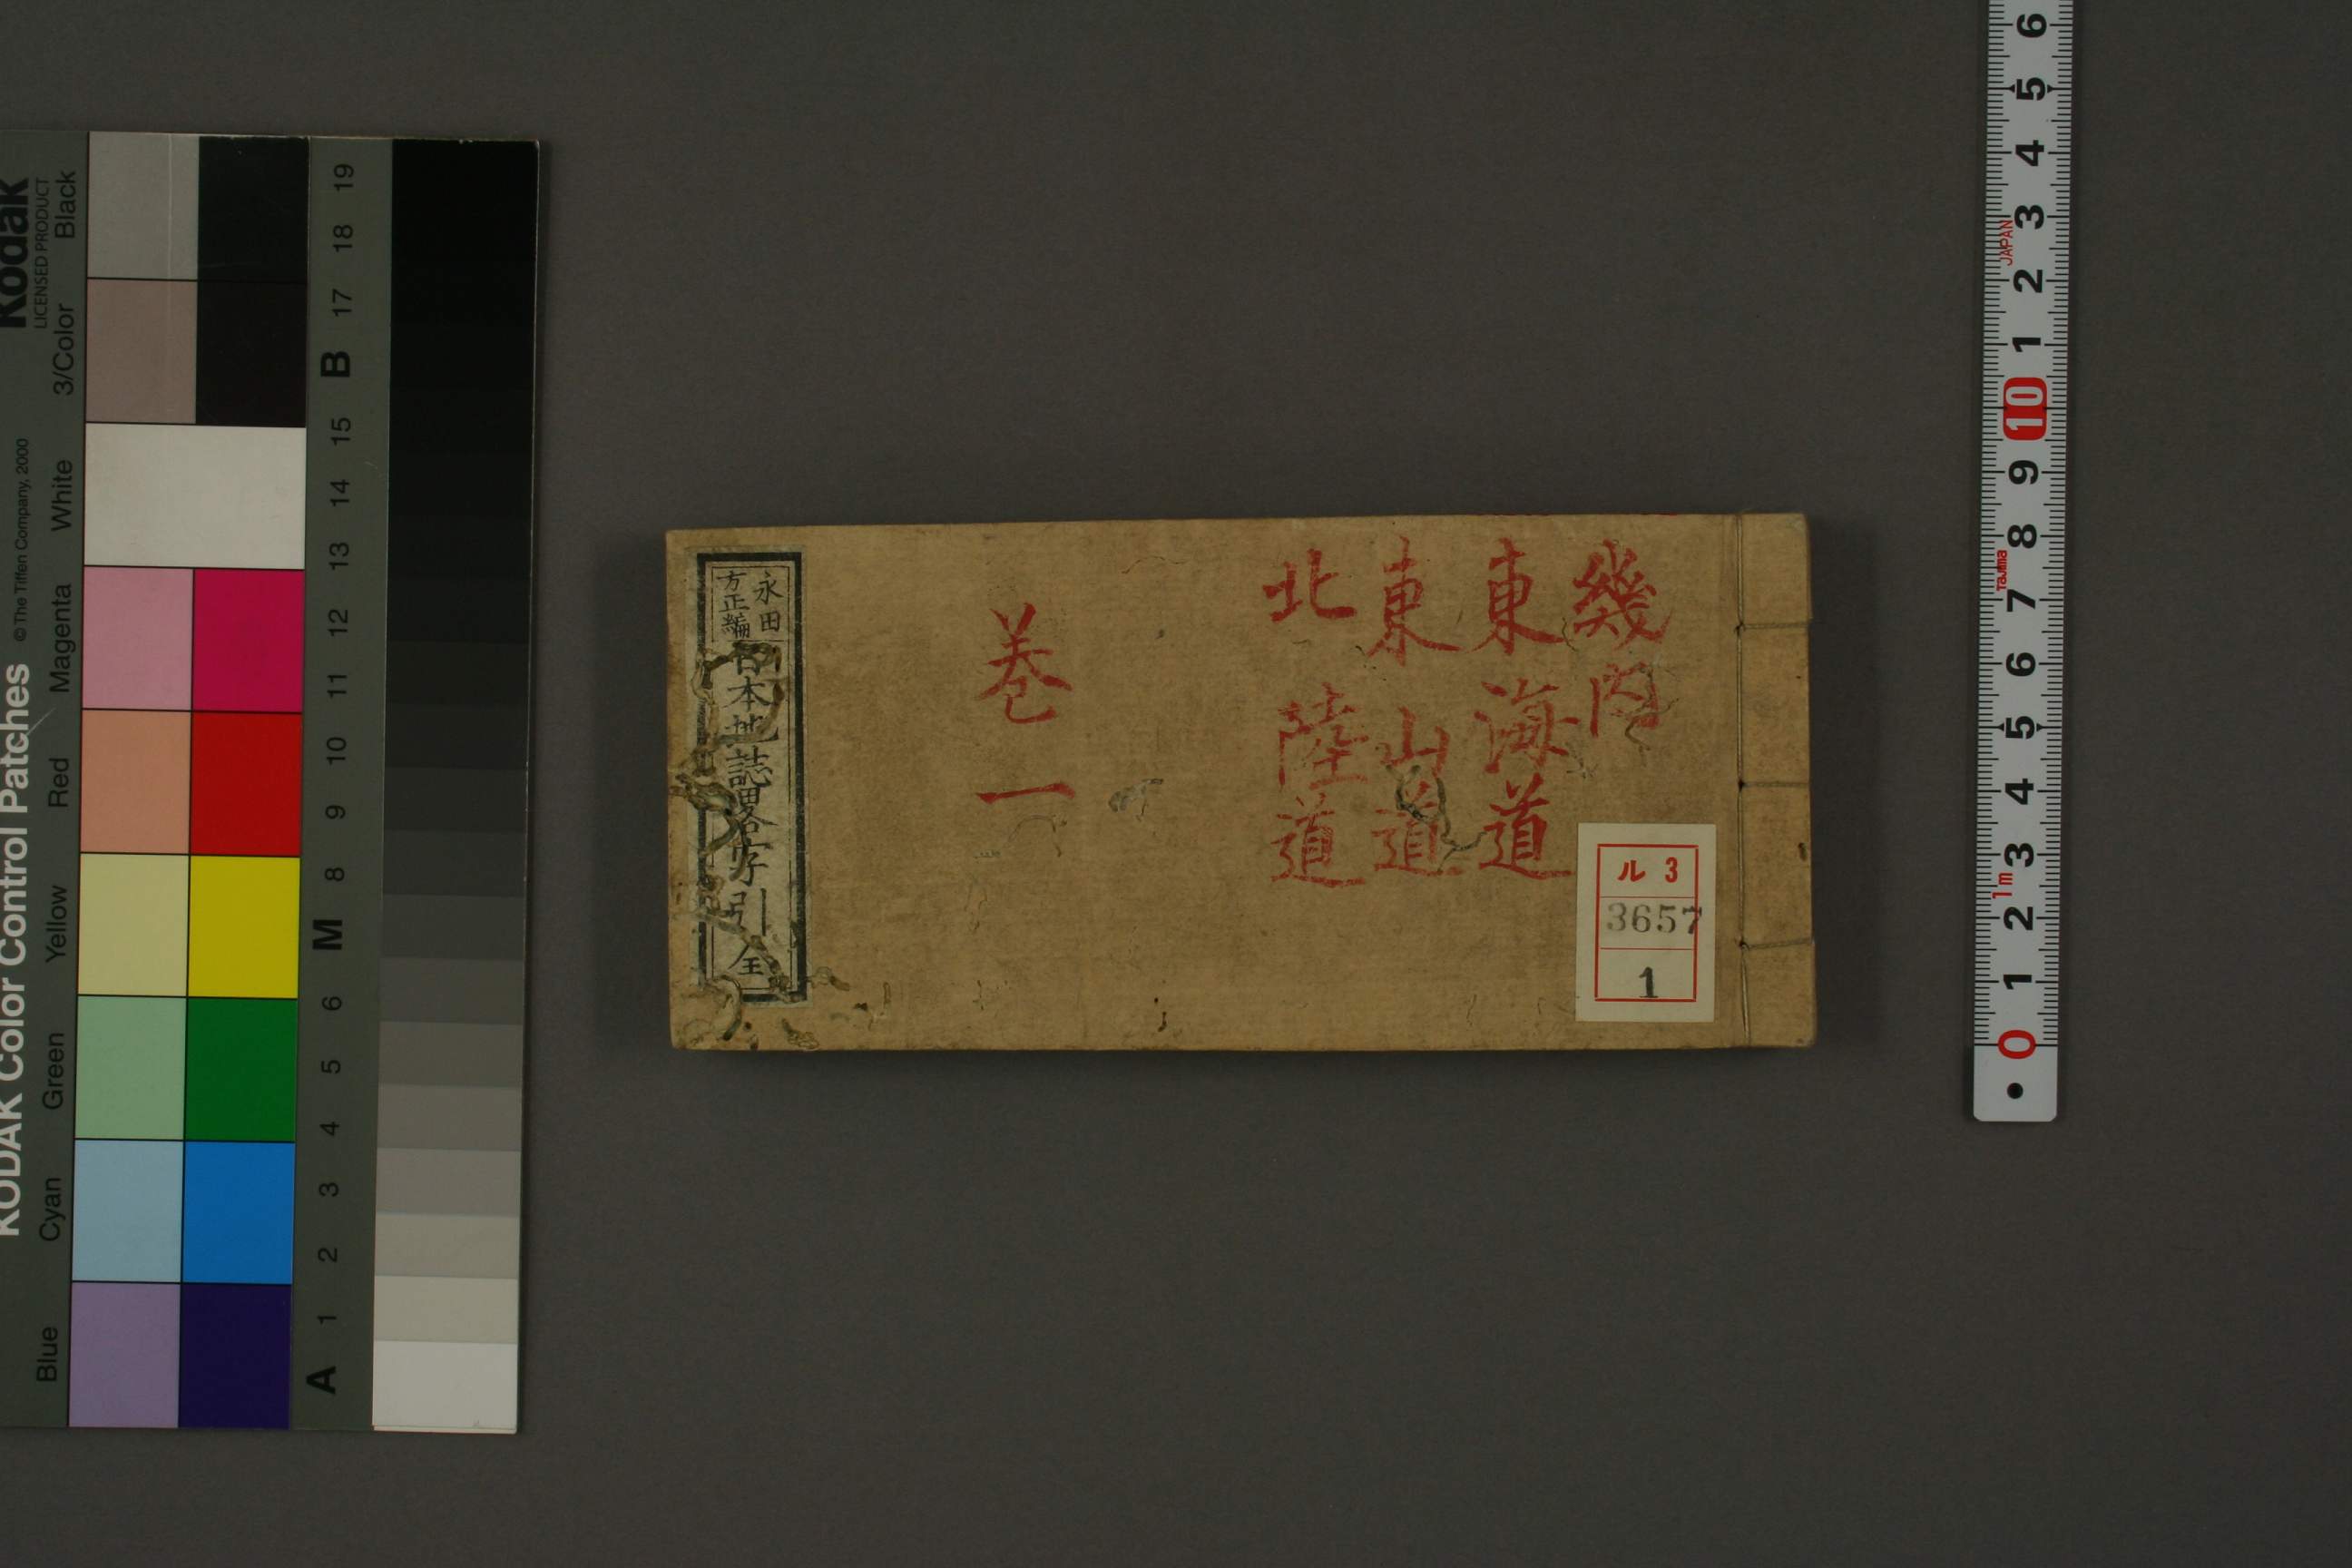 幾内
東海道
東山道
北陸道
巻一
永田
方正編
日本地誌畧字引 全
ル 3
3657
1
KODAK Color Control Patches
© The Tiffen Company, 2000
Kodak
LICENSED PRODUCT
Blue Cyan Green Yellow Red Magenta White 3/Color Black
A 1 2 3 4 5 6 M 8 9 10 11 12 13 14 15 B 17 18 19
0 1 2 3 4 5 6 7 8 9 10 1 2 3 4 5 6
1m
Tajima
JAPAN